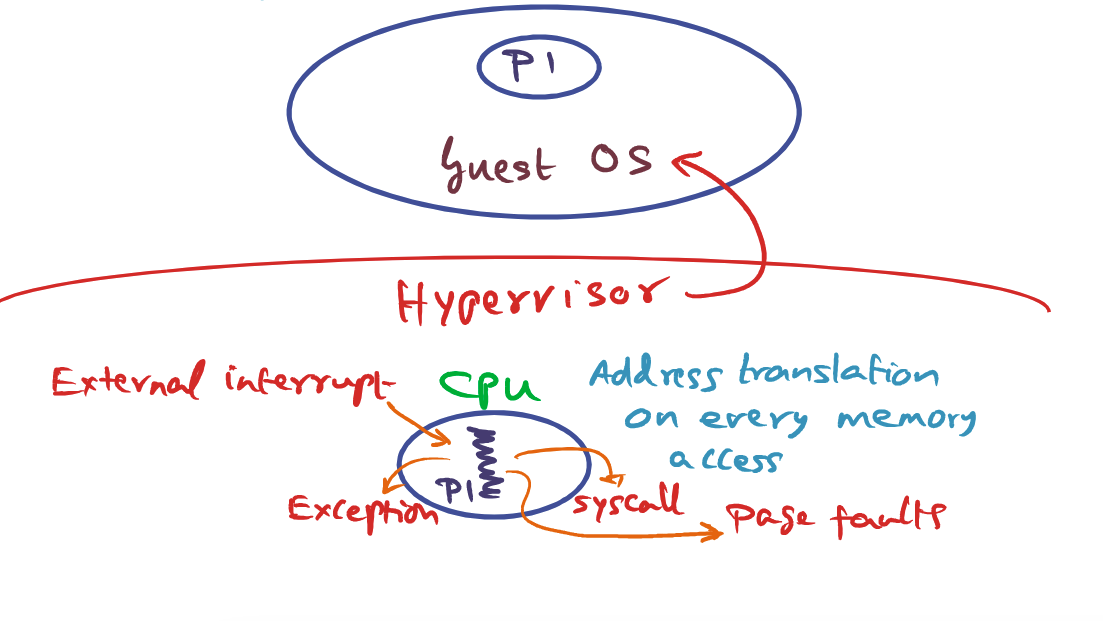 P1
Guest OS
Hypervisor
External interrupt
CPU
Address translation
on every memory
access
P1
Exception
syscall
Page faults